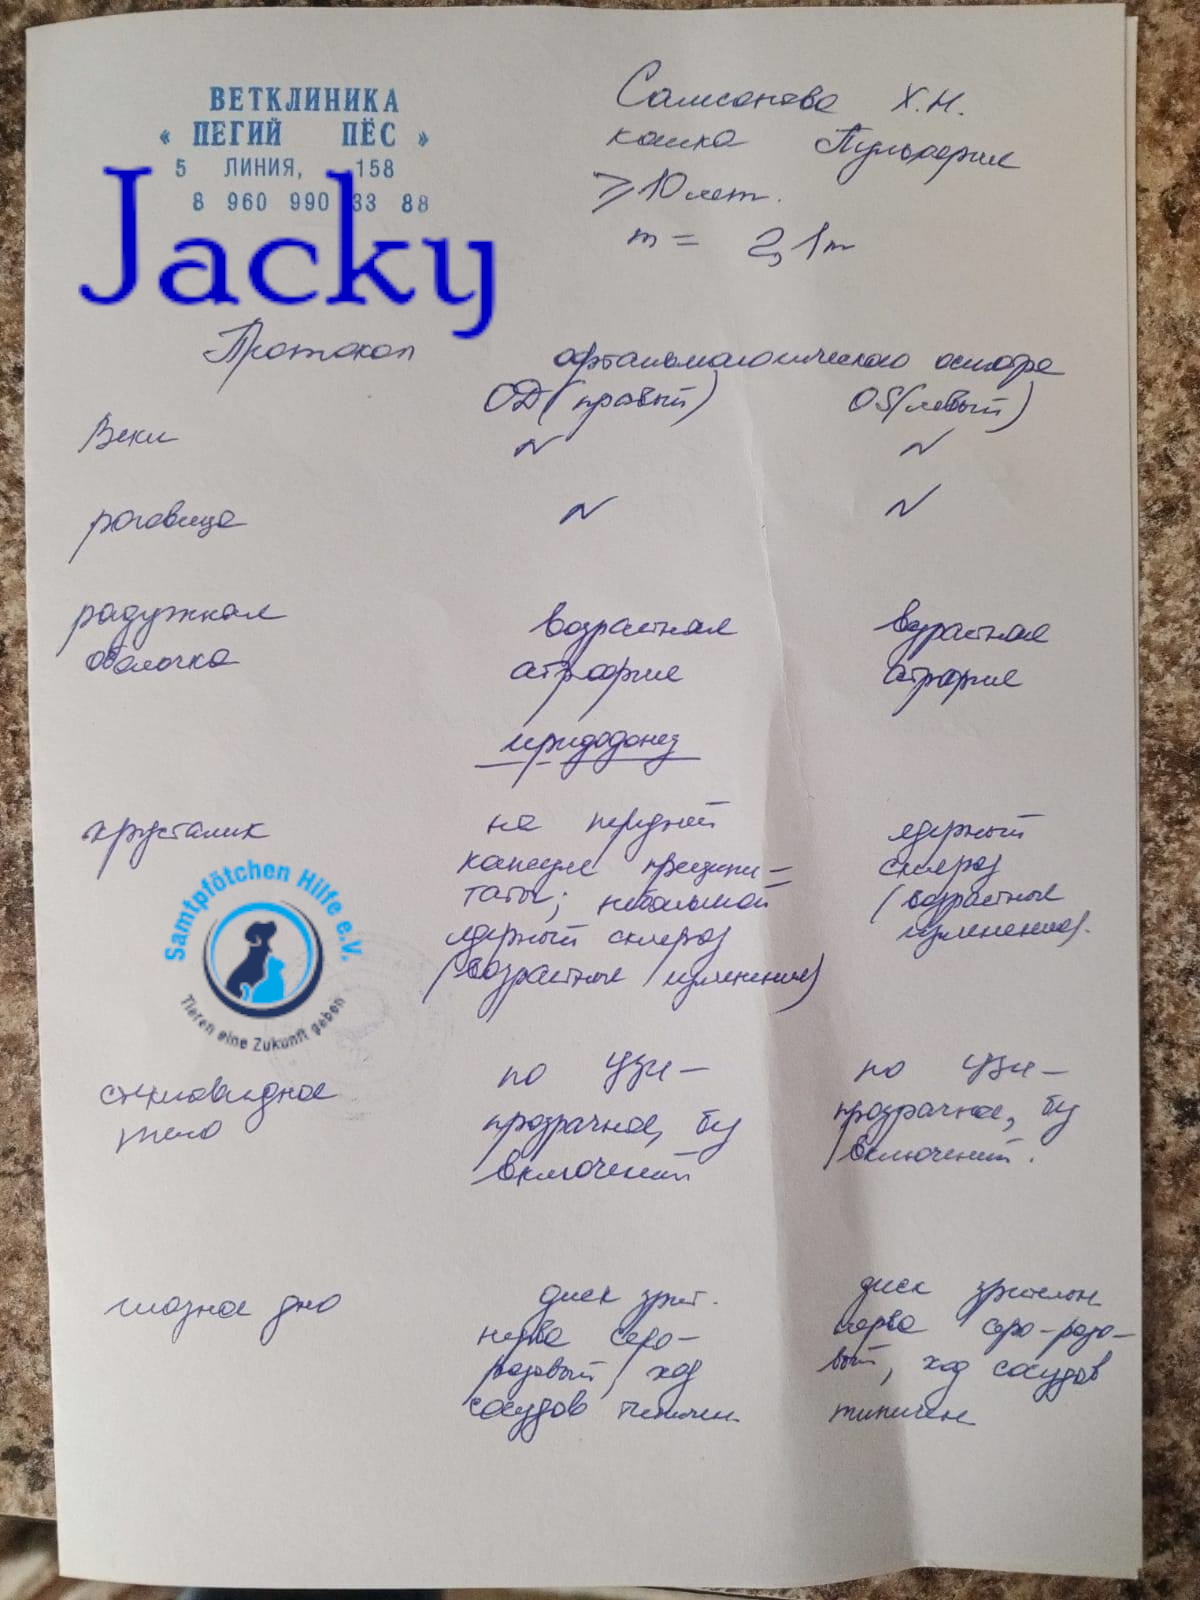 ВЕТКЛИНИКА
« ПЕГИЙ ПЁС »
5 ЛИНИЯ, 158
8 960 990 33 88
Jacky
Самсонова Х.Н.
кошка Пульхерия
≥10 лет.
m = 2,1
Протокол офтальмологического осмотра
OD (правый) OS (левый)
Веки N N
роговица N N
радужная возрастная возрастная
оболочка атрофия атрофия
иридодонез
хрусталик на передней ядерный
капсуле преципи= склероз
таты; небольшой (возрастные
ядерный склероз изменения).
(возрастные изменения)
Samtpfötchen Hilfe e.V.
Tieren eine Zukunft geben
стекловидное по УЗИ – по УЗИ –
тело прозрачное, бу прозрачное, бу
включений включений.
глазное дно диск зрит. диск зрительн
нерва серо- нерва серо-розо-
розовый, ход вый, ход сосудов
сосудов типичен типичен